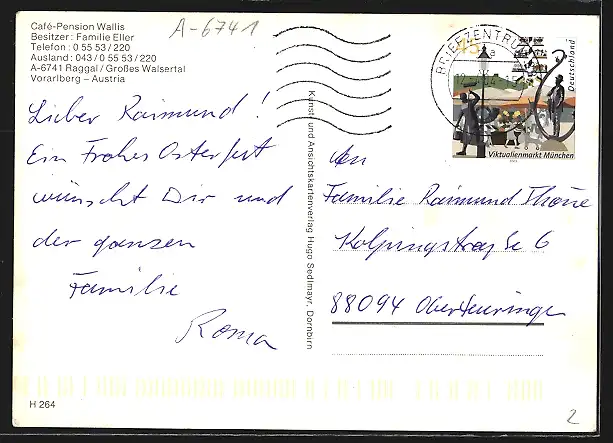 Café-Pension Wallis
Besitzer: Familie Eller
Telefon: 0 55 53 / 220
Ausland: 043 / 0 55 53 / 220
A-6741 Raggal / Großes Walsertal
Vorarlberg – Austria
A-6741
Lieber Raimund!
Ein Frohes Osterfest
wünscht Dir und
der ganzen
Familie
Roma
H 264
Kunst- und Ansichtskartenverlag Hugo Sedlmayr, Dornbirn
BRIEFZENTRUM
a
45
Deutschland
Viktualienmarkt München
An
Familie Raimund Thöne
Kolpingstraße 6
88094 Oberteuringen
2